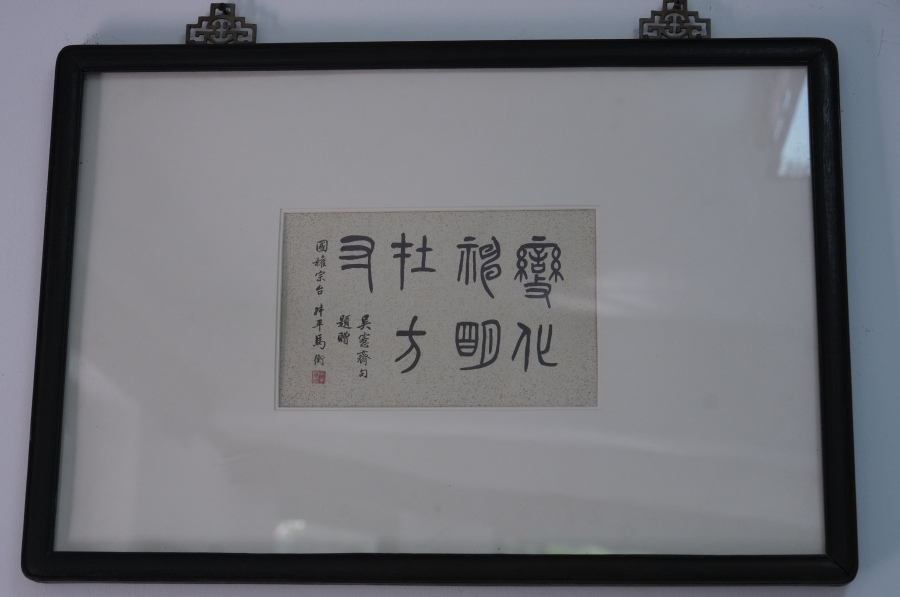 變化
神明
在方
寸
吳愙齋句
題贈
國權宗台 叔平馬衡